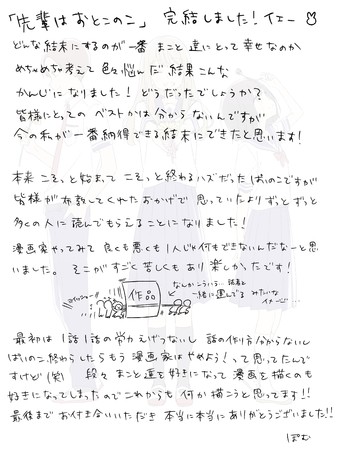 「先輩はおとこのこ」 完結しました！イエー
どんな結末にするのが一番 まこと達にとって幸せなのか
めちゃめちゃ考えて 色々悩んだ結果こんな
かんじになりました！ どうだったでしょうか？
皆様にとっての ベストかは分からないんですが
今の私が一番納得できる結末にできたと思います！
本来 こそっと始まって こそっと終わるハズだった ぱいのこですが
皆様が布教してくれたおかげで 思っていたよりずっとずっと
多くの人に読んでもらえることになりました！
漫画家やってみて 良くも悪くも1人じゃ何もできないんだなーと思
いました。 そこがすごく苦しくもあり楽しかったです！
なんかこういう… 読者と
一緒に運んでる みたいな
イメージ…
作品
最初は 1話1話の労力えげつないし 話の作り方分からないし
ぱいのこ終わらしたらもう漫画家はやめよう！って思ってたんで
すけど(笑) 段々 まこと達を好きになって 漫画を描くのも
好きになってしまったのでこれからも何か描こうと思ってます!!
最後まで お付き合いいただき 本当に本当に ありがとうございました!!
ぽむ